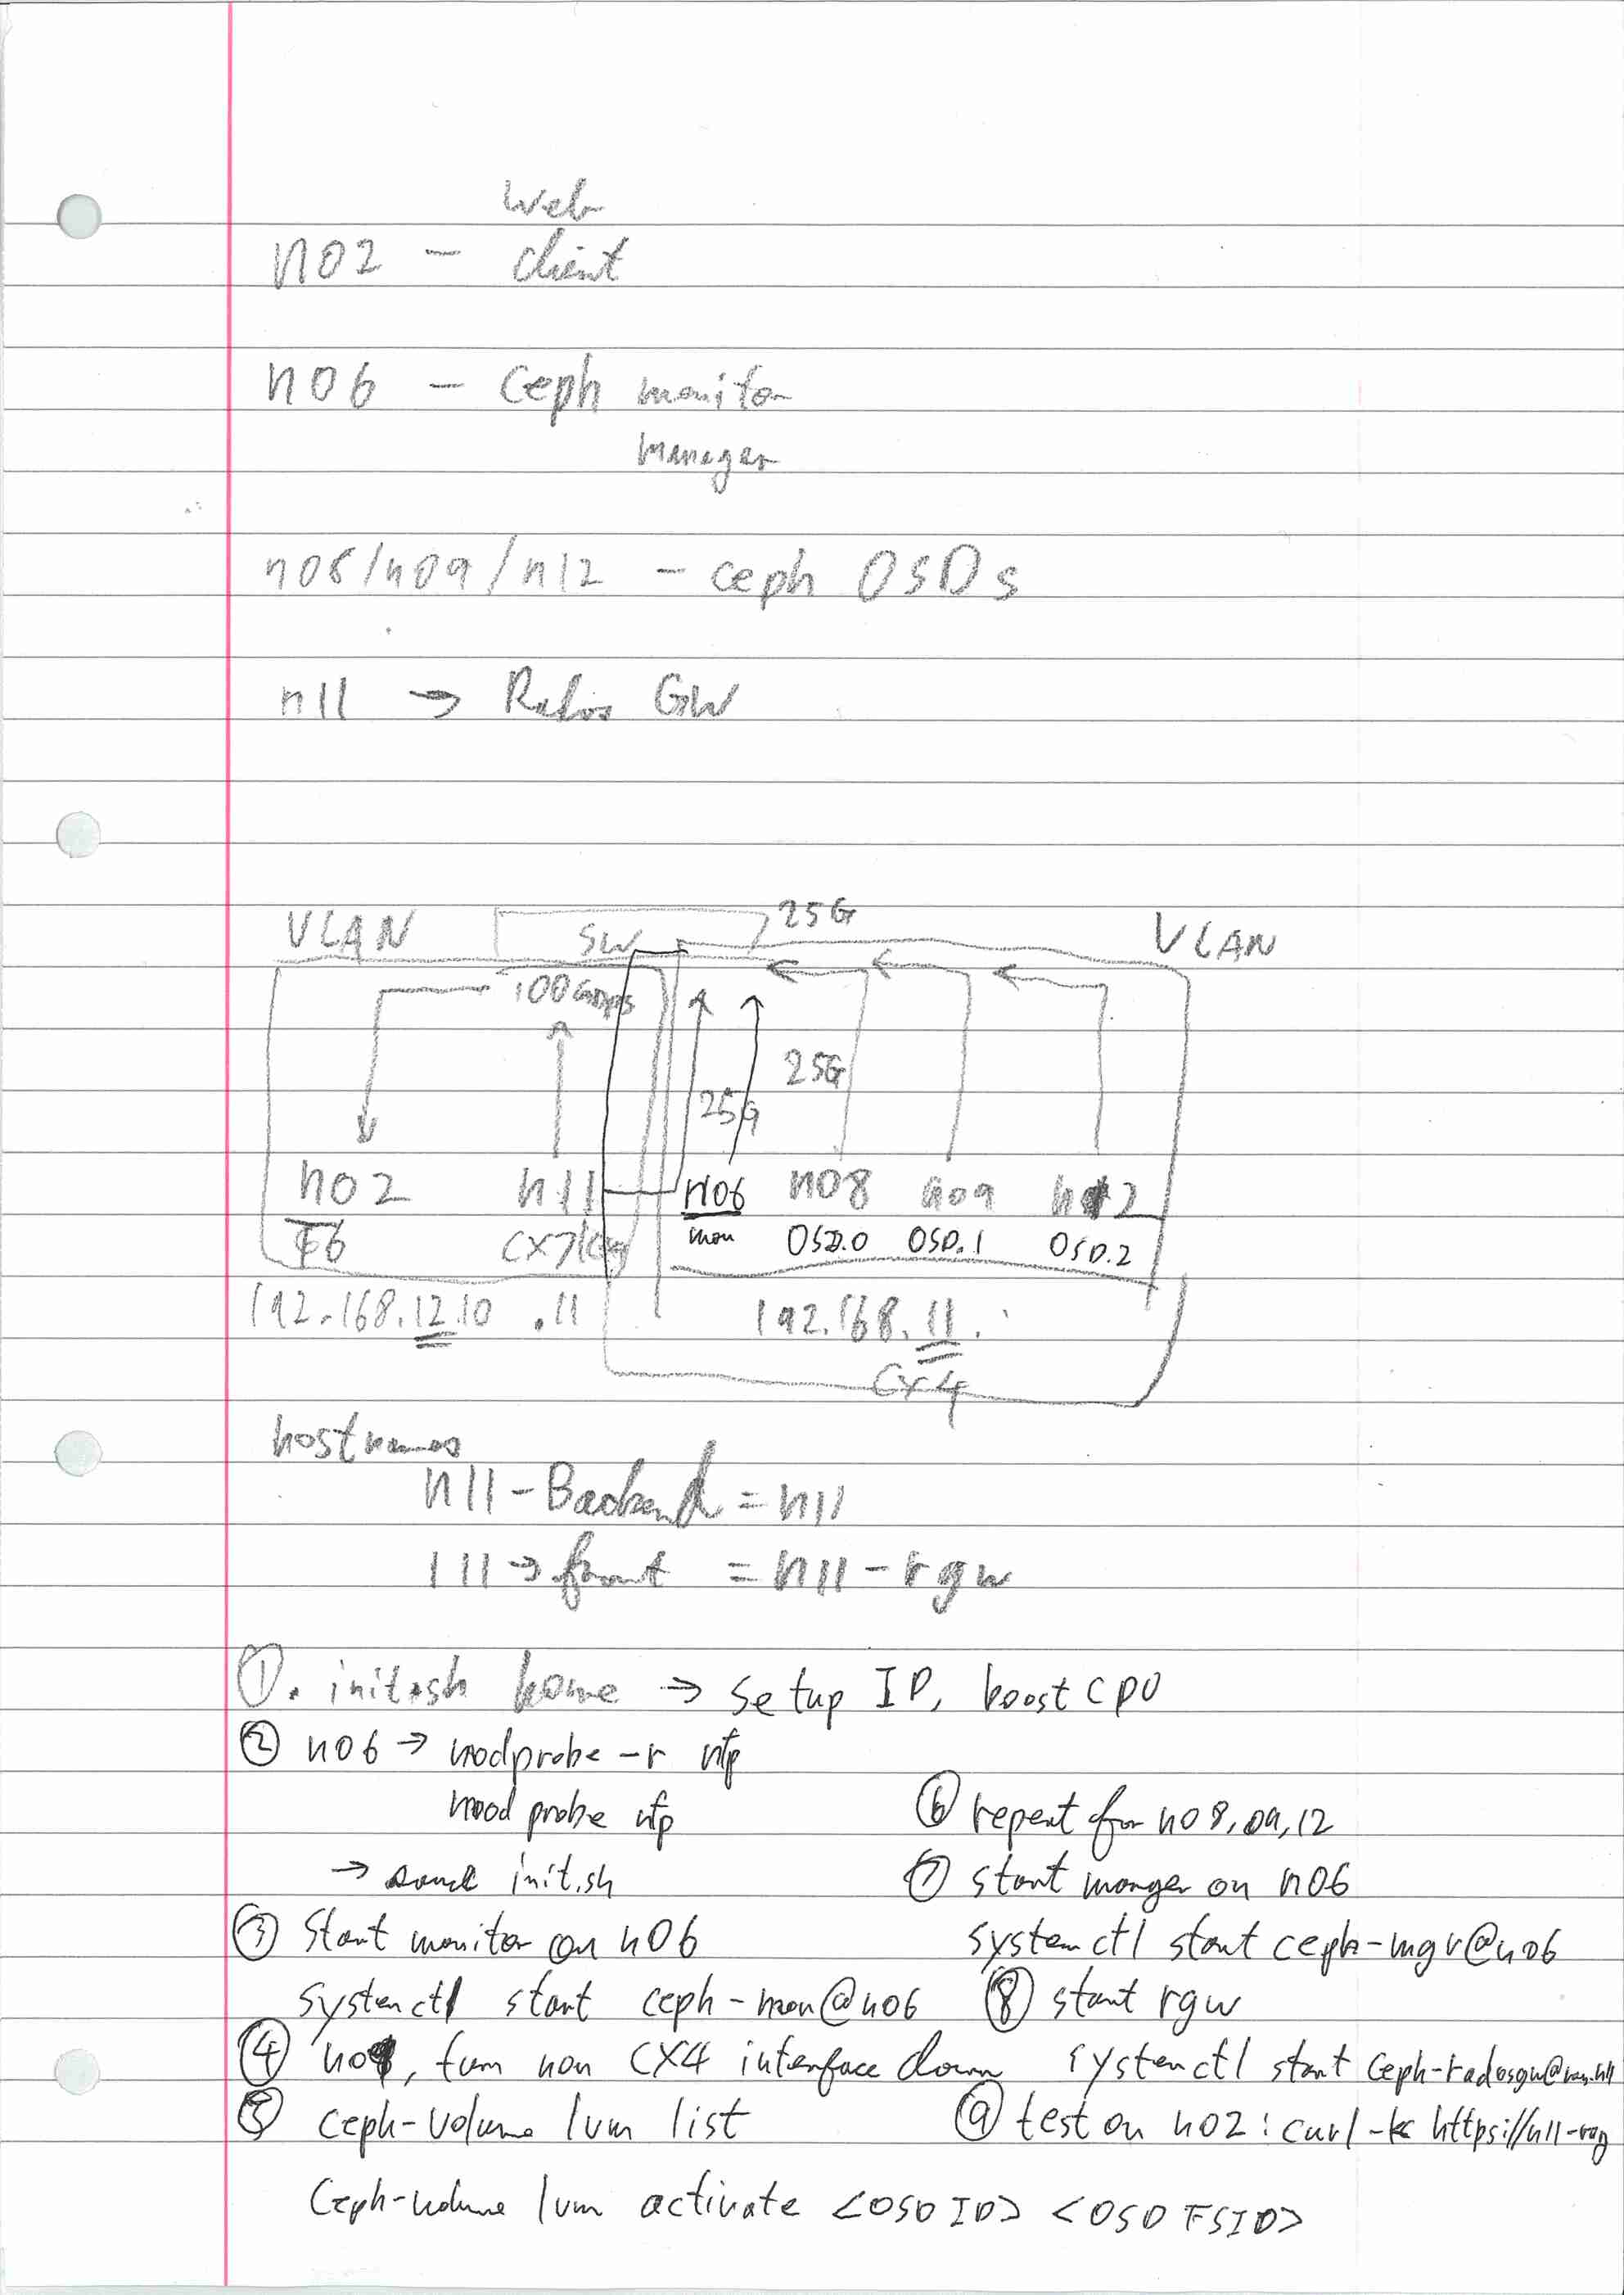 Web
n02 - client
n06 - Ceph monitor
manager
n08/n09/n12 - ceph OSDs
n11 → Rados GW
VLAN SW 25G VLAN
100Gbps
25G
25G
n02 n11 n06 n08 n09 n12
T6 CX7 mon OSD.0 OSD.1 OSD.2
192.168.12.10 .11 192.168.11.
CX4
hostnames
n11-Backend = n11
n11 → front = n11-rgw
①. init.sh home → setup IP, boost CPU
② n06 → modprobe -r nfp
modprobe nfp
→ init.sh
③ Start monitor on n06
systemctl start ceph-mon@n06
④ turn non CX4 interface down
⑤ ceph-volume lvm list
Ceph-volume lvm activate <OSD ID> <OSD FSID>
⑥ repeat for n08, 09, 12
⑦ start manger on n06
systemctl start ceph-mgr@n06
⑧ start rgw
systemctl start ceph-radosgw@
⑨ test on n02: curl -k https://n11-rgw